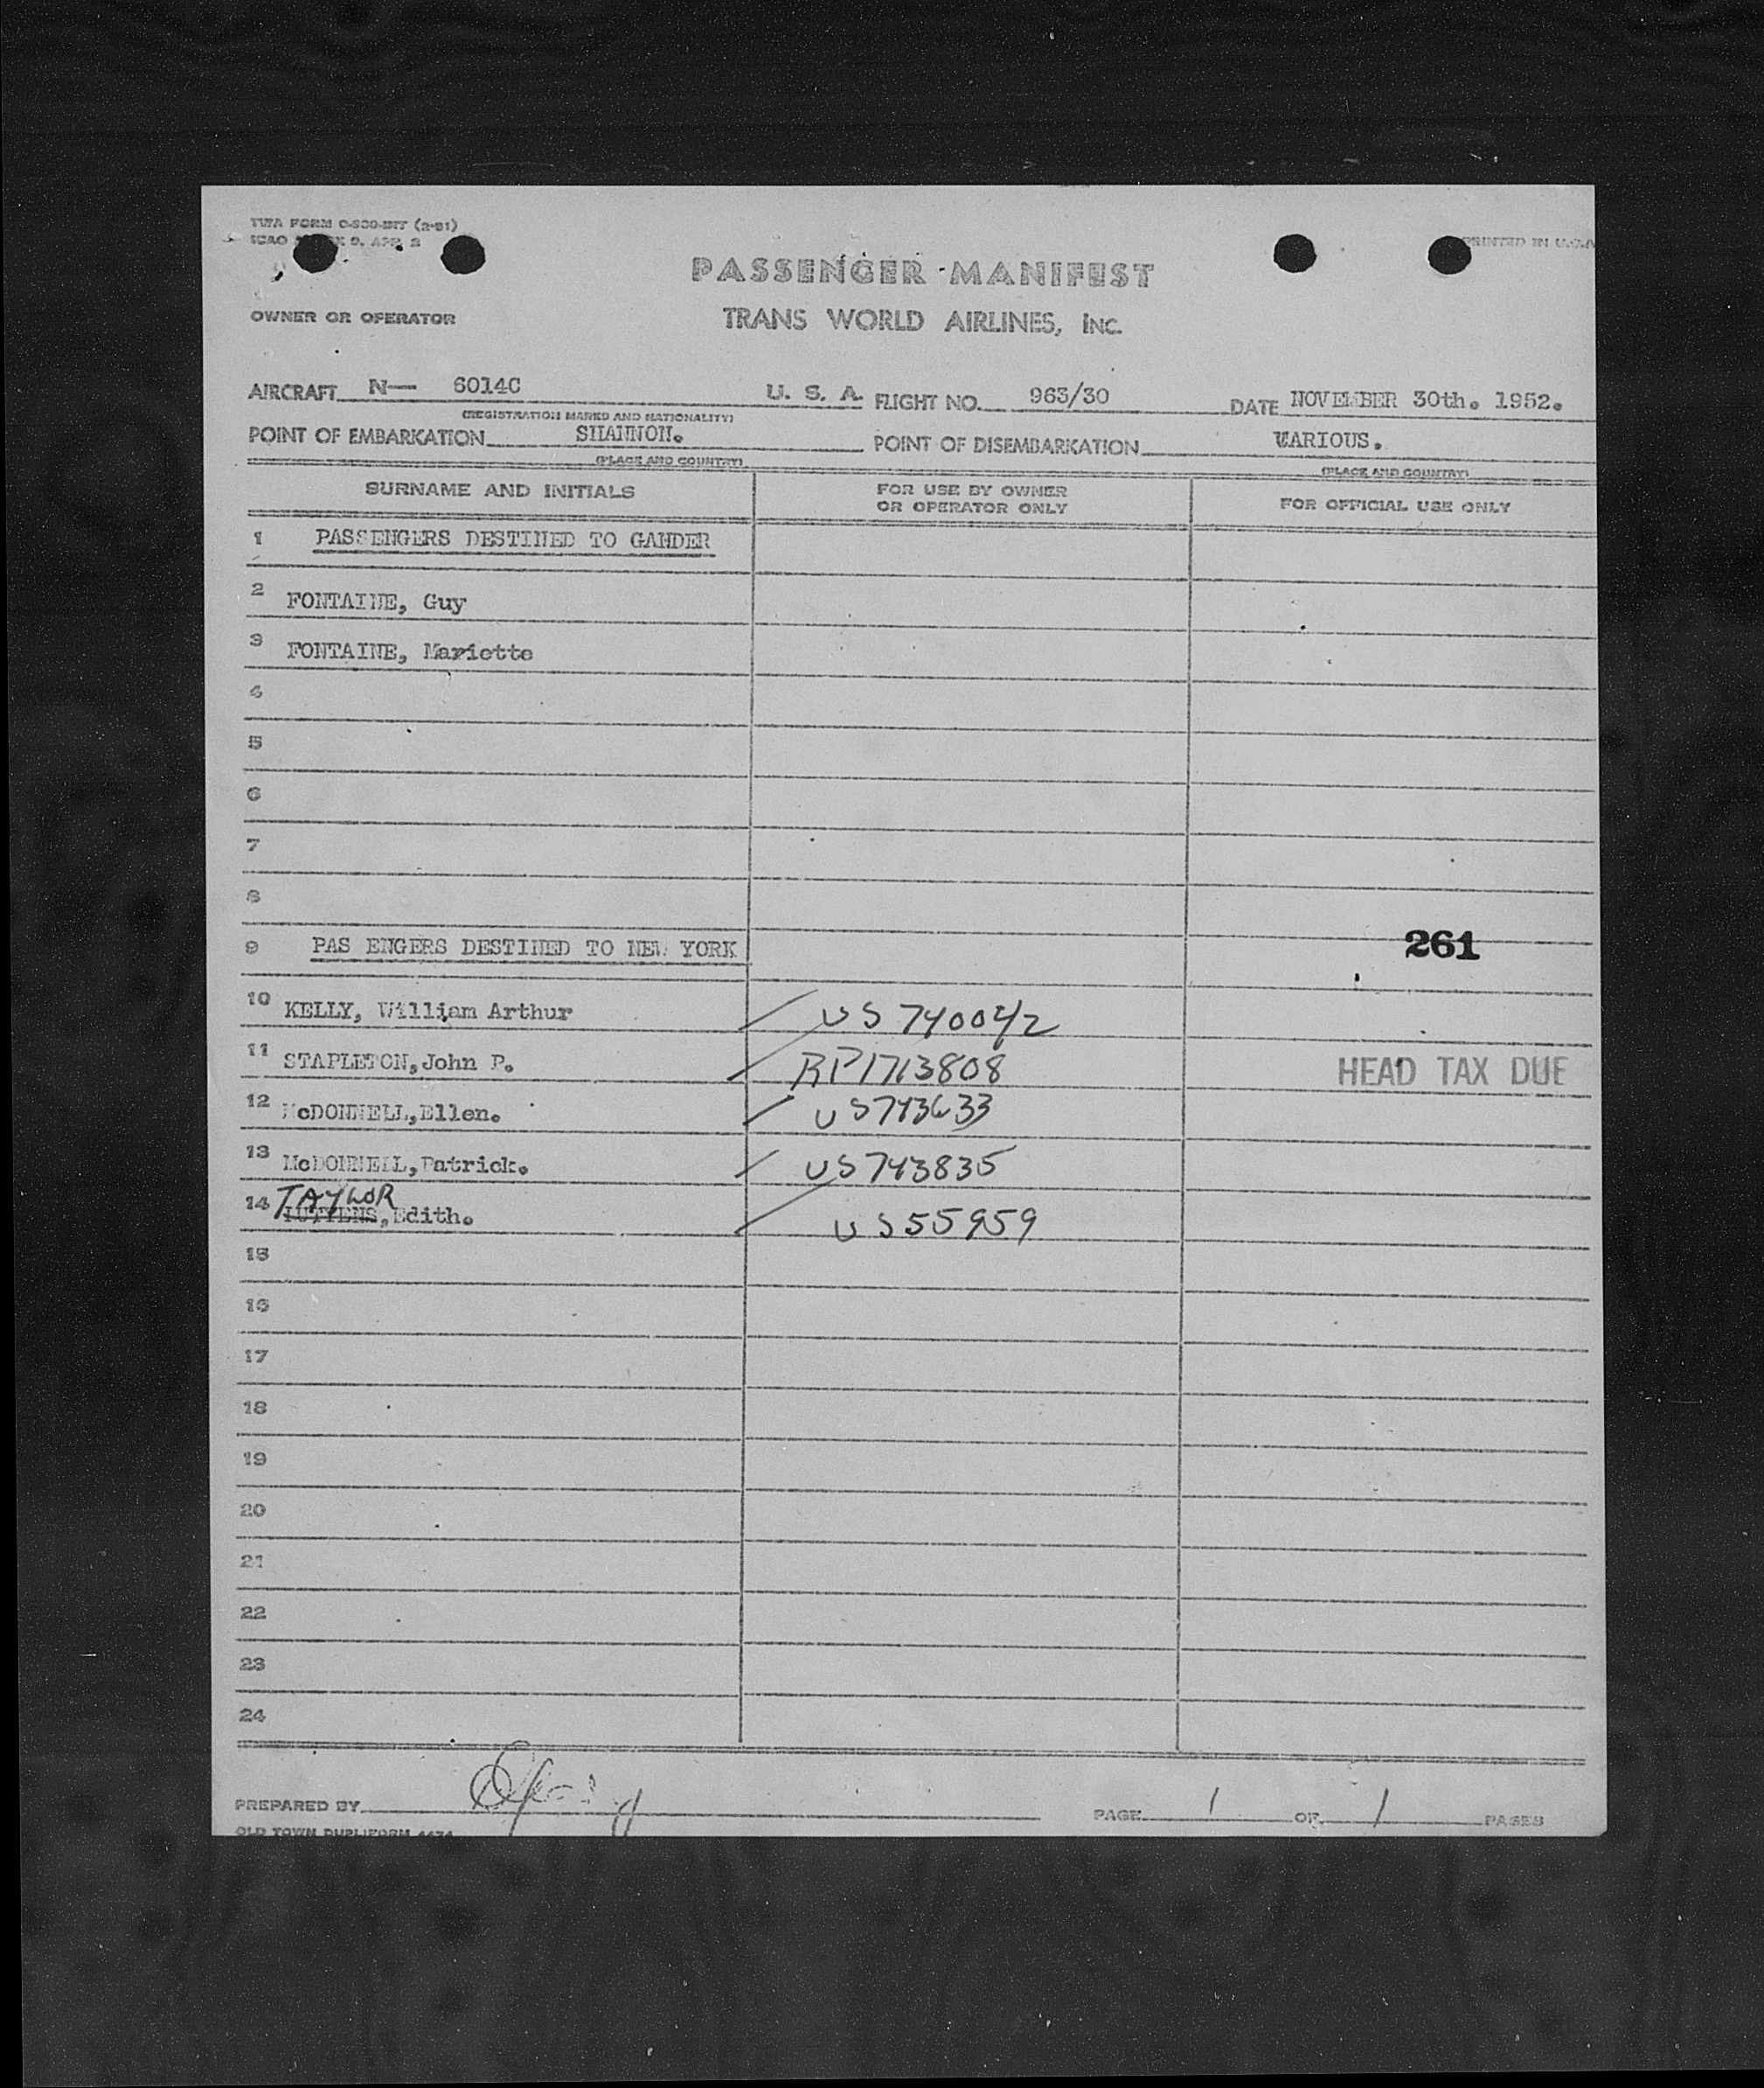 TWA FORM
PRINTED IN U.S.A
PASSENGER MANIFEST
OWNER OR OPERATOR TRANS WORLD AIRLINES, INC.
AIRCRAFT N— 6014C U. S. A. FLIGHT NO. 963/30 DATE NOVEMBER 30th. 1952.
(REGISTRATION MARKS AND NATIONALITY)
POINT OF EMBARKATION SHANNON. POINT OF DISEMBARKATION VARIOUS.
(PLACE AND COUNTRY) (PLACE AND COUNTRY)
SURNAME AND INITIALS FOR USE BY OWNER OR OPERATOR ONLY FOR OFFICIAL USE ONLY
1 PASSENGERS DESTINED TO GANDER
2 FONTAINE, Guy
3 FONTAINE, Mariette
4
5
6
7
8
9 PAS ENGERS DESTINED TO NEW YORK 261
10 KELLY, William Arthur US 740042
11 STAPLETON,John P. RP1713808 HEAD TAX DUE
12 McDONNELL,Ellen. US743633
13 McDONNELL,Patrick. US743835
14 TAYLOR Edith. US55959
15
16
17
18
19
20
21
22
23
24
PREPARED BY PAGE 1 OF 1 PAGES
OLD TOWN DUPLIFORM